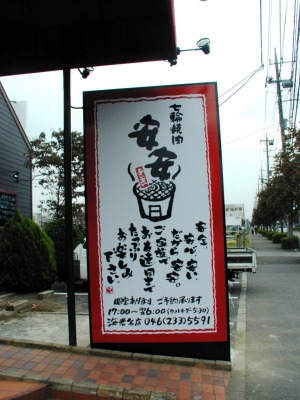 七輪焼肉
安安
安全、
安心、安い
だから、安安。
ご家族で
お友達同士で
たっぷり
お楽しみ
下さい。
個室あります ご予約承ります
17:00〜翌6:00(ラストオーダー5:30)
海老名店 046(233)5591